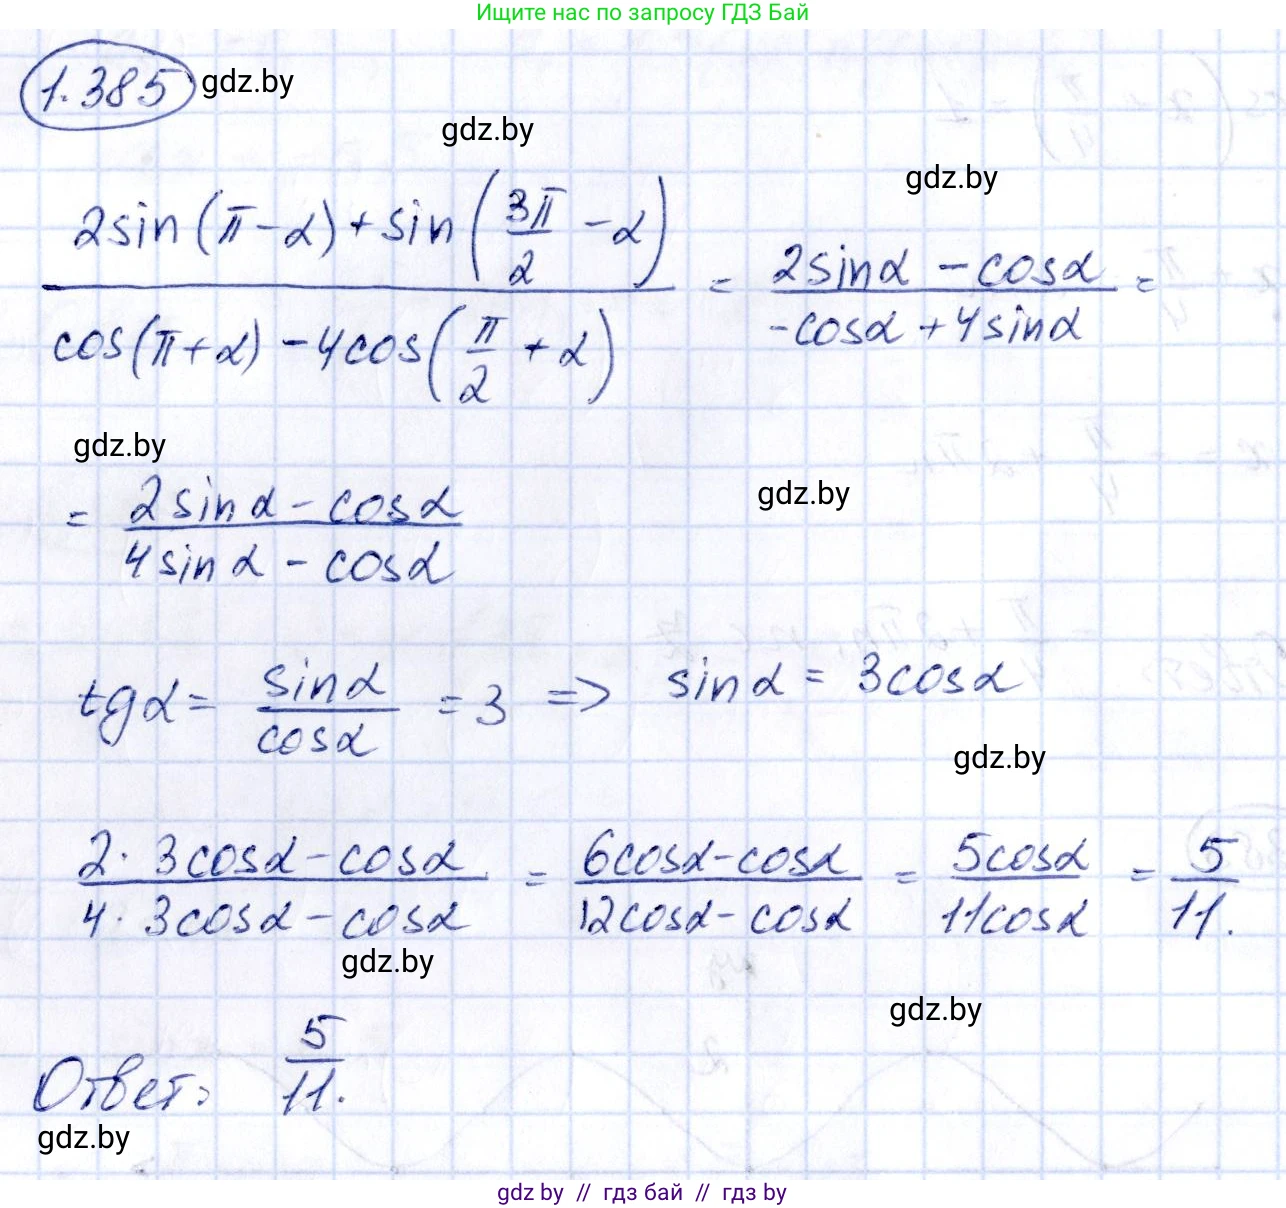 Ищите нас по запросу ГДЗ Бай
1.385 gdz.by
gdz.by
gdz.by
2sin(π-α)+sin(3π/2 -α) / cos(π+α)-4cos(π/2+α) = 2sinα-cosα / -cosα+4sinα =
gdz.by
gdz.by
= 2sinα-cosα / 4sinα-cosα
tgα= sinα/cosα =3 => sinα= 3cosα
gdz.by
2·3cosα-cosα / 4·3cosα-cosα = 6cosα-cosα / 12cosα-cosα = 5cosα / 11cosα = 5/11.
gdz.by
gdz.by
Ответ: 5/11.
gdz.by
gdz by // гдз бай // гдз by